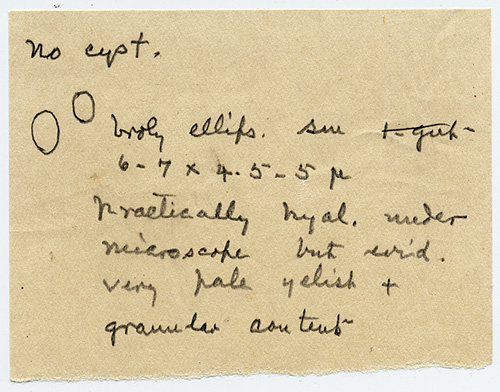 no cyst.
broly ellips. sm 1-gut-
6-7 x 4.5-5 µ
practically hyal. under
microscope but evid.
very pale yelish +
granular content